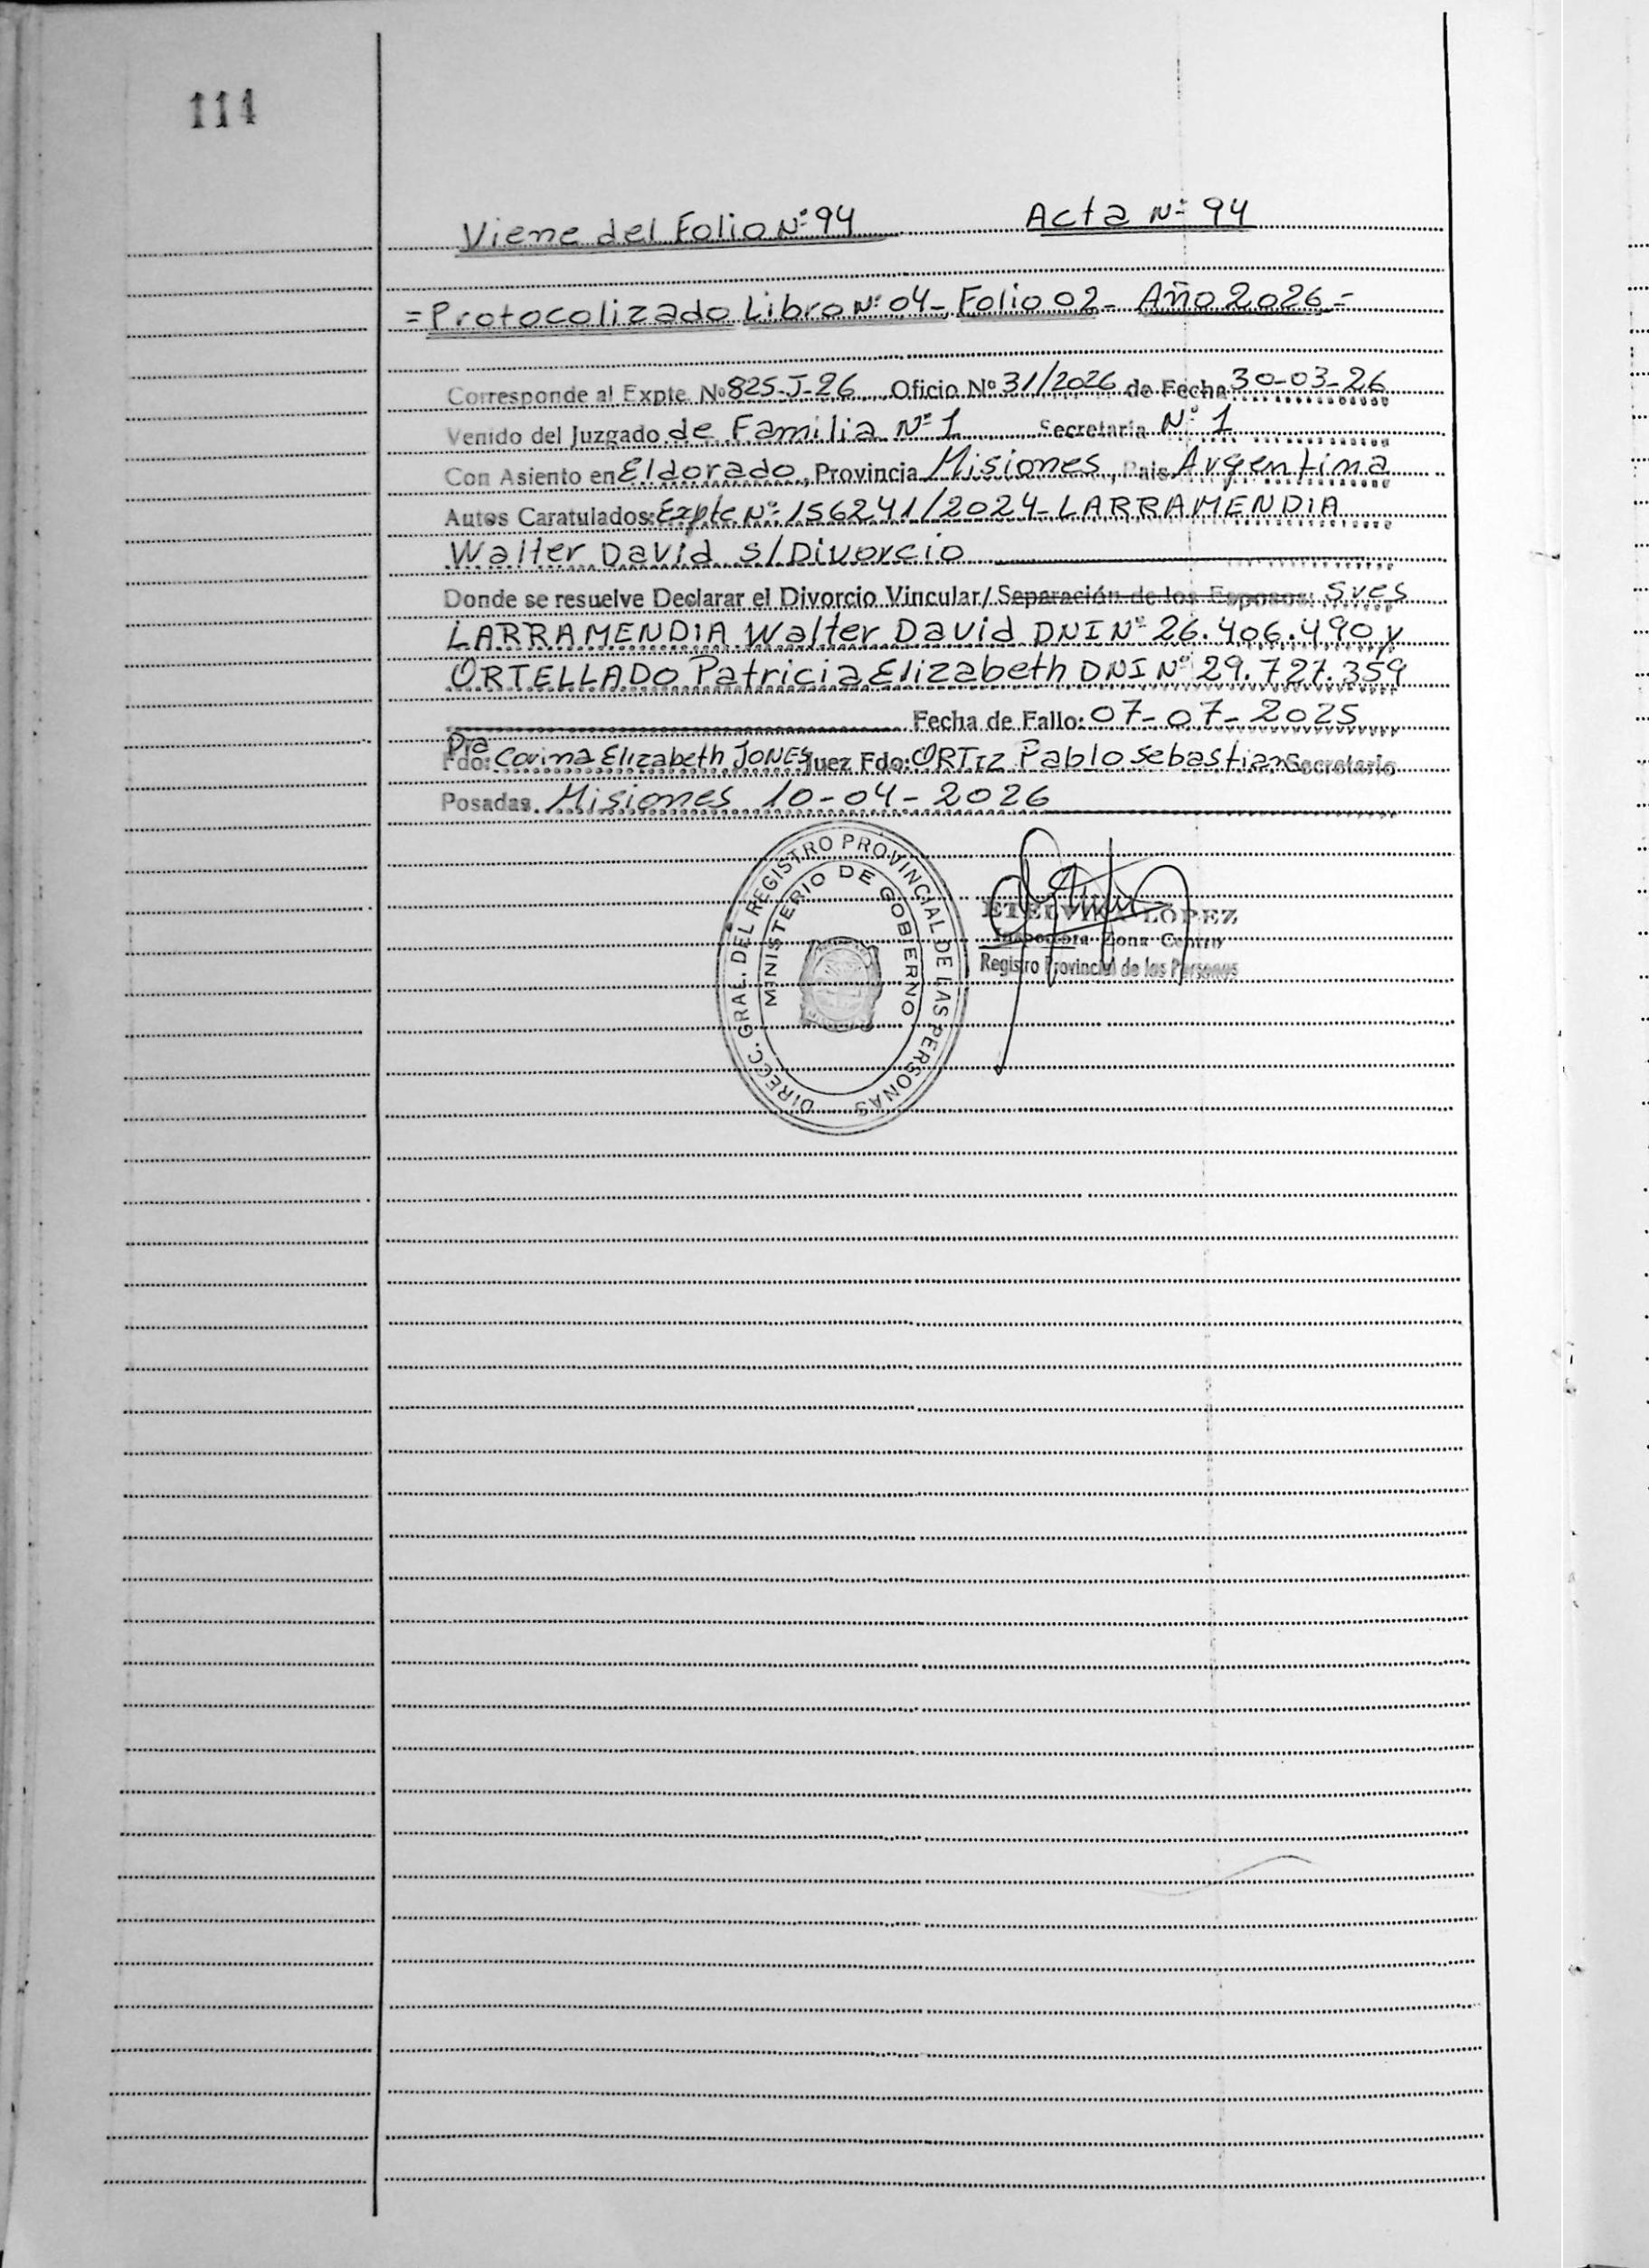 114
Viene del Folio Nº 94 Acta Nº 94
= Protocolizado Libro Nº 04 - Folio 02 - Año 2026 =
Corresponde al Expte. Nº 825-J-26 Oficio Nº 31/2026 de Fecha 30-03-26
Venido del Juzgado de Familia Nº 1 Secretaria Nº 1
Con Asiento en Eldorado, Provincia Misiones, Pais Argentina
Autos Caratulados: Expte Nº 156241/2024 - LARRAMENDIA
Walter David s/Divorcio
Donde se resuelve Declarar el Divorcio Vincular/ Separación de los Esposos: Sres
LARRAMENDIA Walter David DNI Nº 26.406.490 y
ORTELLADO Patricia Elizabeth DNI Nº 29.727.359
Fecha de Fallo: 07-07-2025
Dra
Fdo: Corina Elizabeth JONES Juez Fdo: ORTIZ Pablo Sebastian Secretario
Posadas, Misiones 10-04-2026
DIRECC. GRAL. DEL REGISTRO PROVINCIAL DE LAS PERSONAS
MINISTERIO DE GOBIERNO
ETELVINA LOPEZ
Inspectora Zona Centro
Registro Provincial de las Personas